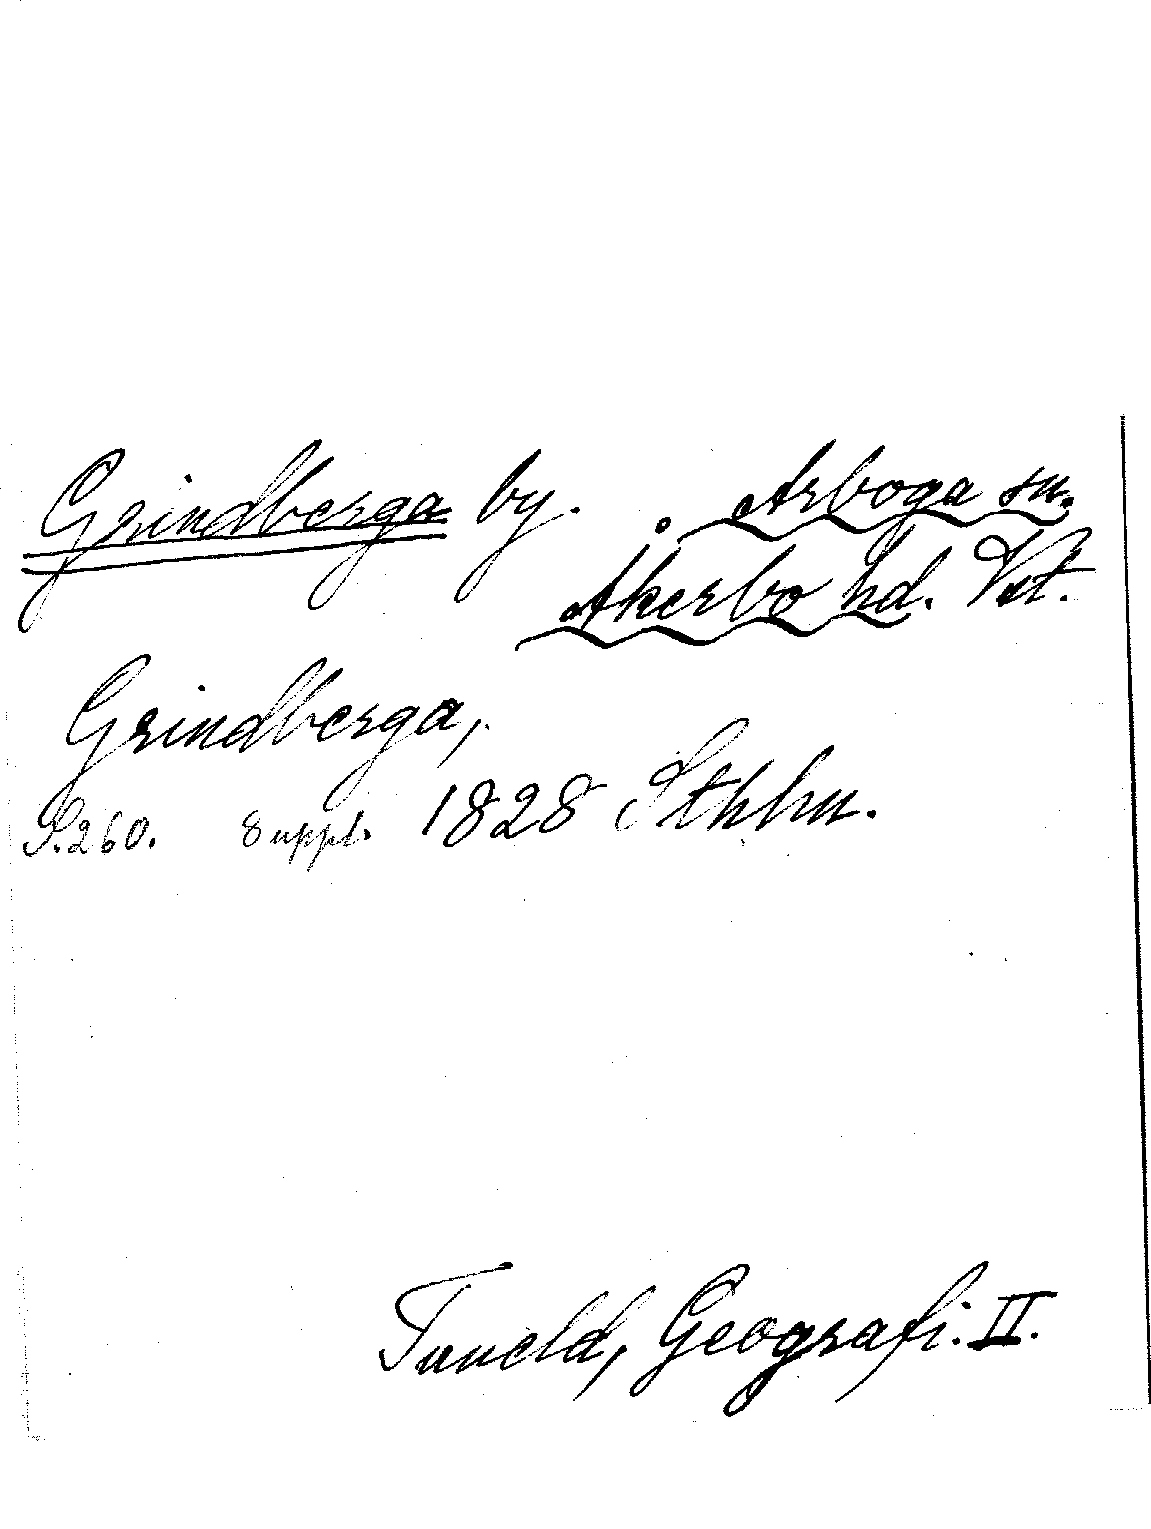 Grindberga by. Arboga sn.
Åkerbo hd. Vst.
Grindberga,
S. 260. Suppl. 1828 Sthlm.
Tuneld, Geografi. II.